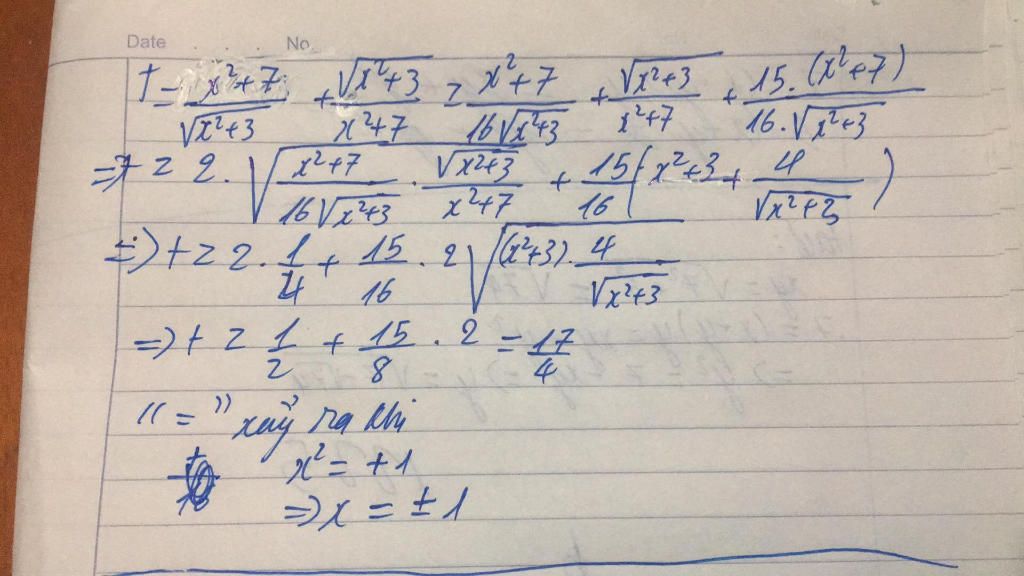 Date No
t = \frac{x^2+7}{\sqrt{x^2+3}} + \frac{\sqrt{x^2+3}}{x^2+7} = \frac{x^2+7}{16\sqrt{x^2+3}} + \frac{\sqrt{x^2+3}}{x^2+7} + \frac{15.(x^2+7)}{16.\sqrt{x^2+3}}
=> t ≥ 2.\sqrt{\frac{x^2+7}{16\sqrt{x^2+3}} . \frac{\sqrt{x^2+3}}{x^2+7}} + \frac{15}{16}(x^2+3 + \frac{4}{\sqrt{x^2+3}})
=> t ≥ 2.\frac{1}{4} + \frac{15}{16} . 2\sqrt{(x^2+3).\frac{4}{\sqrt{x^2+3}}}
=> t ≥ \frac{1}{2} + \frac{15}{8} . 2 = \frac{17}{4}
"=" xảy ra khi
x^2 = +1
=> x = ±1